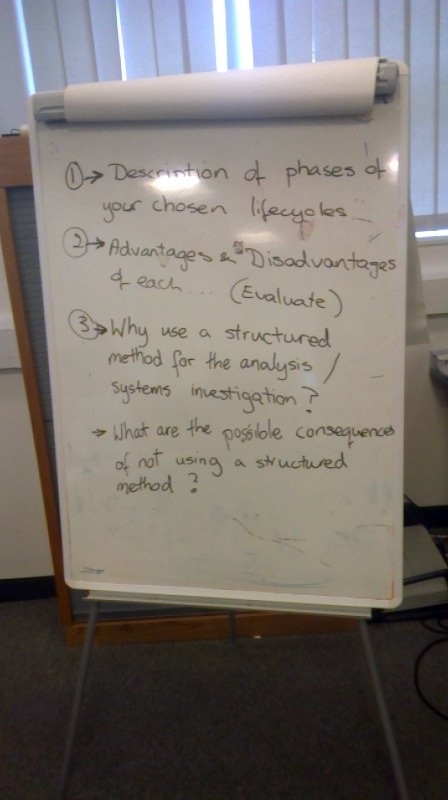 ① → Description of phases of
your chosen lifecycles...
② → Advantages & Disadvantages
of each... (Evaluate)
③ → Why use a structured
method for the analysis /
systems investigation?
→ What are the possible consequences
of not using a structured
method?